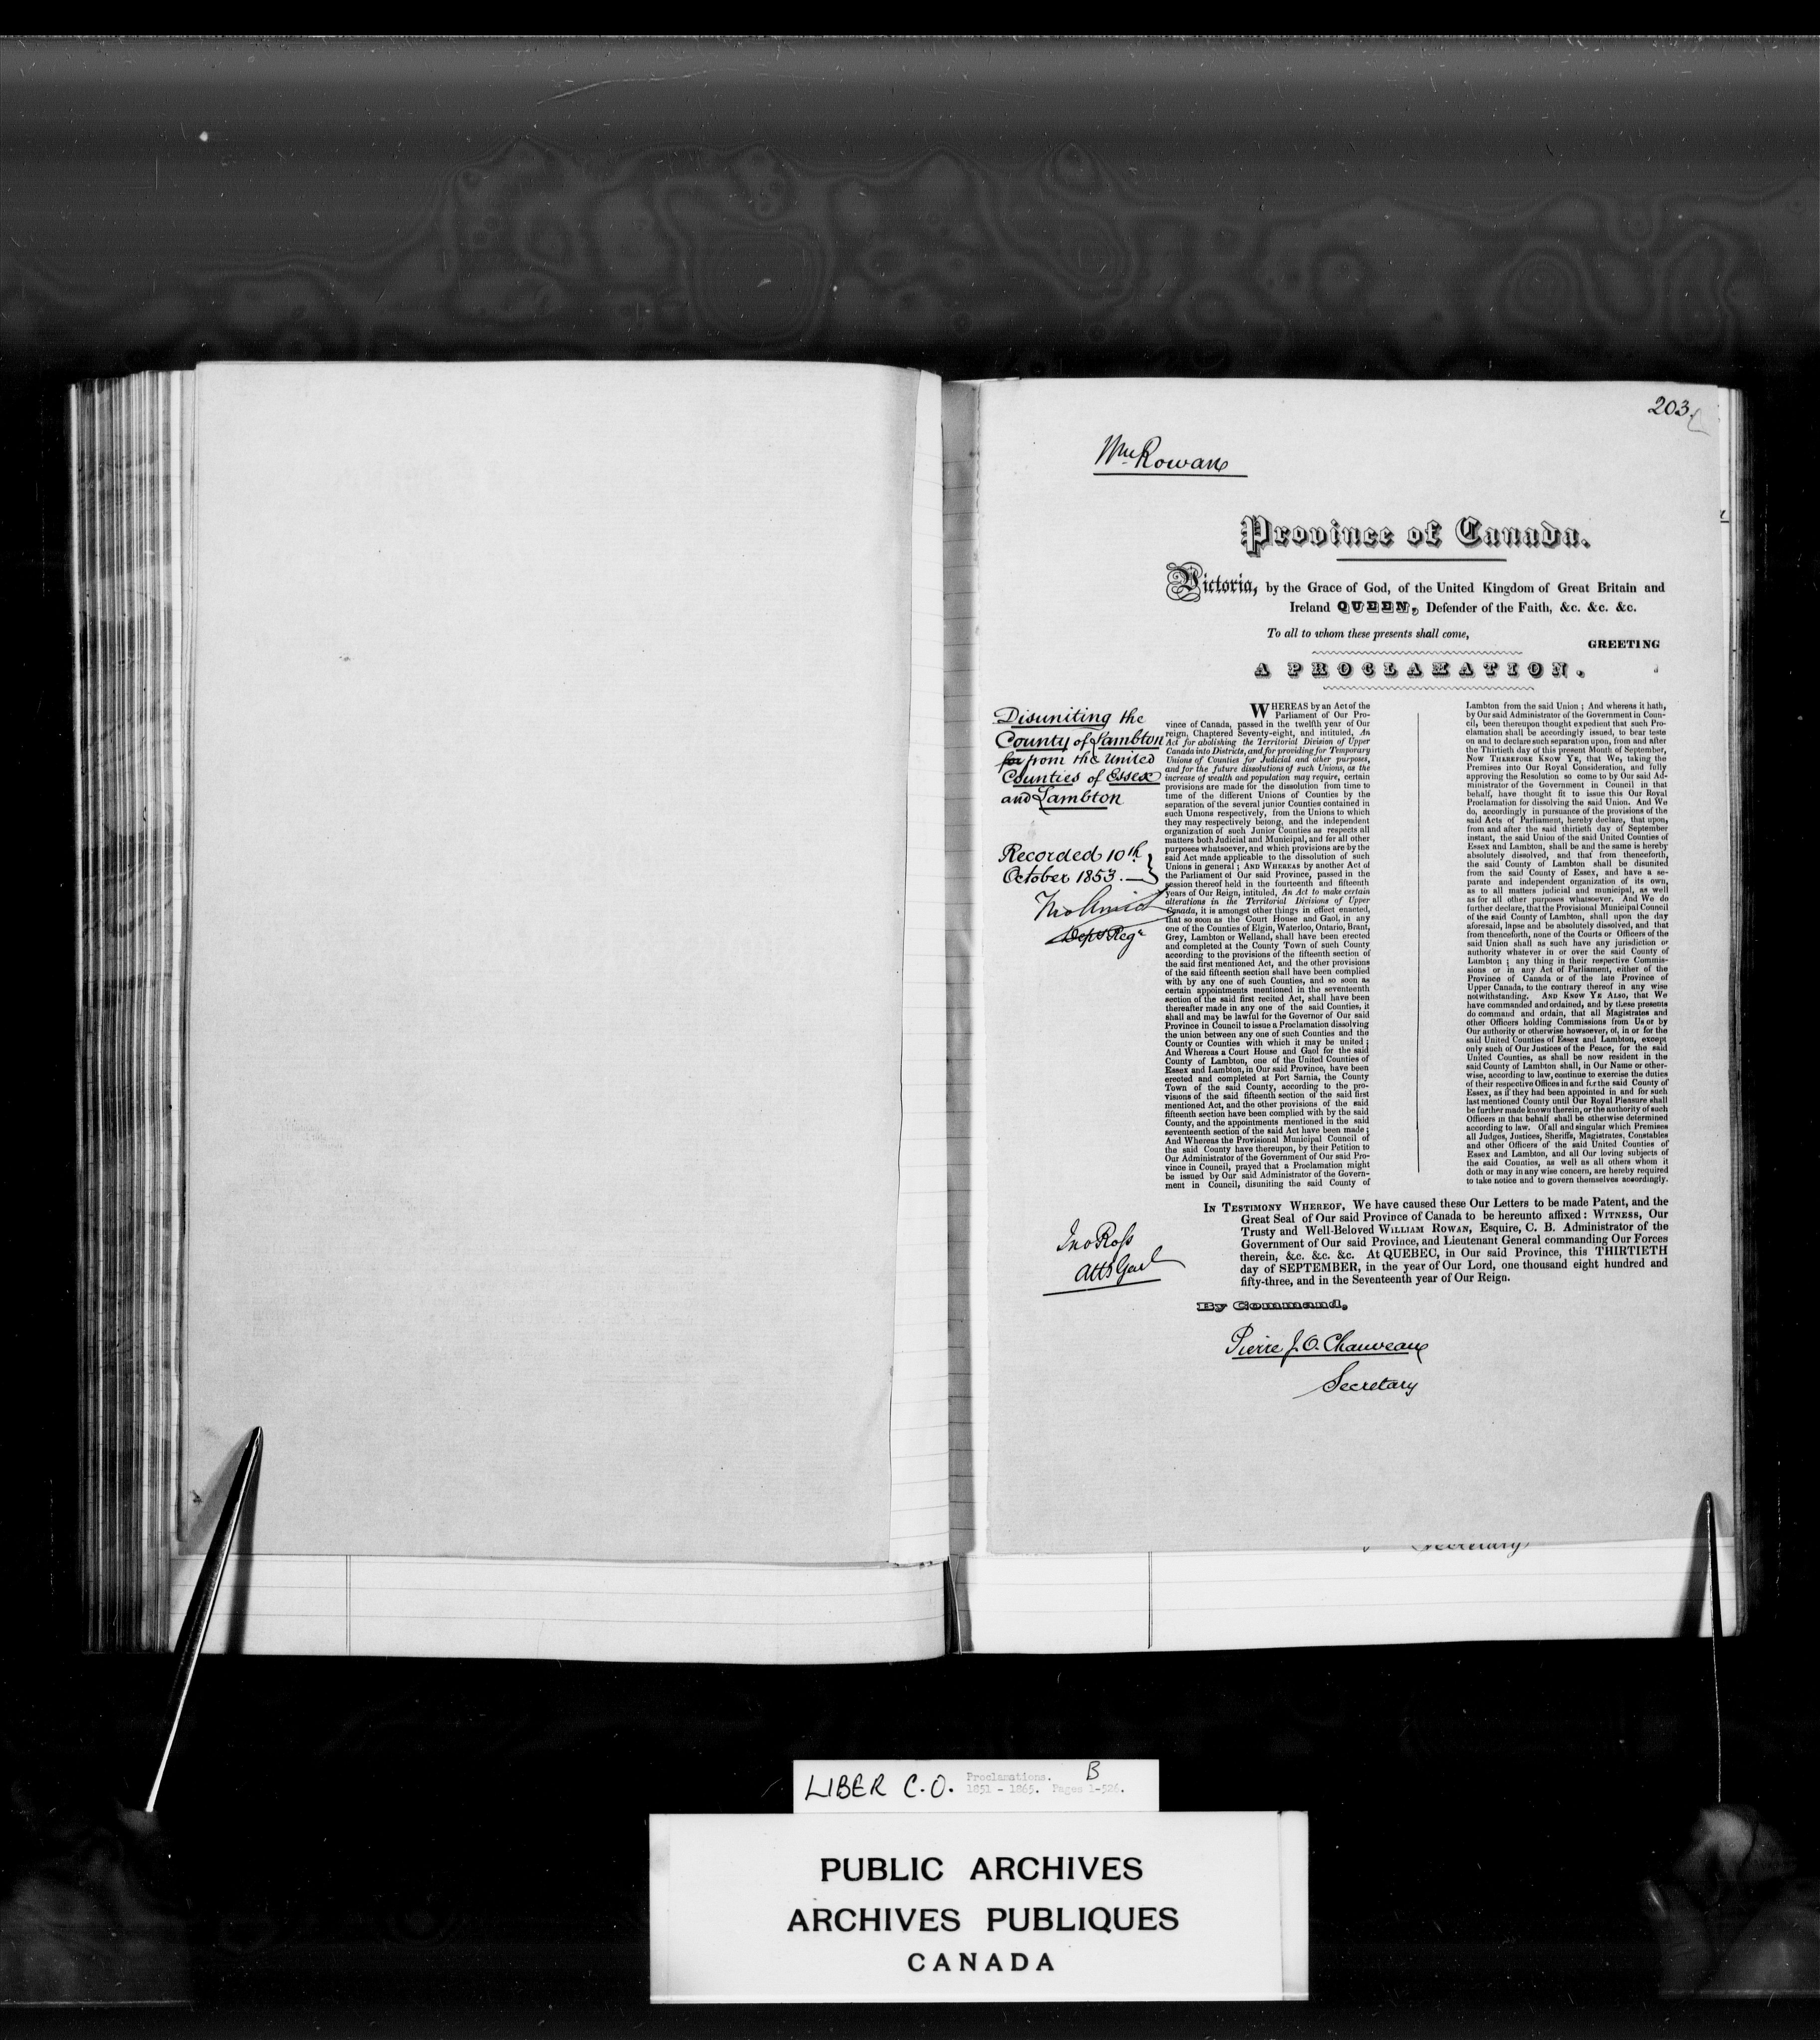 203.
Wm Rowan
Province of Canada.
Victoria, by the Grace of God, of the United Kingdom of Great Britain and
Ireland QUEEN, Defender of the Faith, &c. &c. &c.
To all to whom these presents shall come,
GREETING
A PROCLAMATION.
Disuniting the
County of Lambton
for from the United
Counties of Essex
and Lambton
Recorded 10th
October 1853.
Depy Regr
WHEREAS by an Act of the
Parliament of Our Pro-
vince of Canada, passed in the twelfth year of Our
reign, Chaptered Seventy-eight, and intituled, An
Act for abolishing the Territorial Division of Upper
Canada into Districts, and for providing for Temporary
Unions of Counties for Judicial and other purposes,
and for the future dissolutions of such Unions, as the
increase of wealth and population may require, certain
provisions are made for the dissolution from time to
time of the different Unions of Counties by the
separation of the several junior Counties contained in
such Unions respectively, from the Unions to which
they may respectively belong, and the independent
organization of such Junior Counties as respects all
matters both Judicial and Municipal, and for all other
purposes whatsoever, and which provisions are by the
said Act made applicable to the dissolution of such
Unions in general; AND WHEREAS by another Act of
the Parliament of Our said Province, passed in the
session thereof held in the fourteenth and fifteenth
years of Our Reign, intituled, An Act to make certain
alterations in the Territorial Divisions of Upper
Canada, it is amongst other things in effect enacted,
that so soon as the Court House and Gaol, in any
one of the Counties of Elgin, Waterloo, Ontario, Brant,
Grey, Lambton or Welland, shall have been erected
and completed at the County Town of such County
according to the provisions of the fifteenth section of
the said first mentioned Act, and the other provisions
of the said fifteenth section shall have been complied
with by any one of such Counties, and so soon as
certain appointments mentioned in the seventeenth
section of the said first recited Act, shall have been
thereafter made in any one of the said Counties, it
shall and may be lawful for the Governor of Our said
Province in Council to issue a Proclamation dissolving
the union between any one of such Counties and the
County or Counties with which it may be united;
And Whereas a Court House and Gaol for the said
County of Lambton, one of the United Counties of
Essex and Lambton, in Our said Province, have been
erected and completed at Port Sarnia, the County
Town of the said County, according to the pro-
visions of the said fifteenth section of the said first
mentioned Act, and the other provisions of the said
fifteenth section have been complied with by the said
County, and the appointments mentioned in the said
seventeenth section of the said Act have been made;
And Whereas the Provisional Municipal Council of
the said County have thereupon, by their Petition to
Our Administrator of the Government of Our said Pro-
vince in Council, prayed that a Proclamation might
be issued by Our said Administrator of the Govern-
ment in Council, disuniting the said County of
Lambton from the said Union; And whereas it hath,
by Our said Administrator of the Government in Coun-
cil, been thereupon thought expedient that such Pro-
clamation shall be accordingly issued, to bear teste
on and to declare such separation upon, from and after
the Thirtieth day of this present Month of September,
NOW THEREFORE KNOW YE, that We, taking the
Premises into Our Royal Consideration, and fully
approving the Resolution so come to by Our said Ad-
ministrator of the Government in Council in that
behalf, have thought fit to issue this Our Royal
Proclamation for dissolving the said Union. And We
do, accordingly in pursuance of the provisions of the
said Acts of Parliament, hereby declare, that upon,
from and after the said thirtieth day of September
instant, the said Union of the said United Counties of
Essex and Lambton, shall be and the same is hereby
absolutely dissolved, and that from thenceforth,
the said County of Lambton shall be disunited
from the said County of Essex, and have a se-
parate and independent organization of its own,
as to all matters judicial and municipal, as well
as for all other purposes whatsoever. And We do
further declare, that the Provisional Municipal Council
of the said County of Lambton, shall upon the day
aforesaid, lapse and be absolutely dissolved, and that
from thenceforth, none of the Courts or Officers of the
said Union shall as such have any jurisdiction or
authority whatever in or over the said County of
Lambton; any thing in their respective Commis-
sions or in any Act of Parliament, either of the
Province of Canada or of the late Province of
Upper Canada, to the contrary thereof in any wise
notwithstanding. AND KNOW YE ALSO, that We
have commanded and ordained, and by these presents
do command and ordain, that all Magistrates and
other Officers holding Commissions from Us or by
Our authority or otherwise howsoever, of, in or for the
said United Counties of Essex and Lambton, except
only such of Our Justices of the Peace, for the said
United Counties, as shall be now resident in the
said County of Lambton shall, in Our Name or other-
wise, according to law, continue to exercise the duties
of their respective Offices in and for the said County of
Essex, as if they had been appointed in and for such
last mentioned County until Our Royal Pleasure shall
be further made known therein, or the authority of such
Officers in that behalf shall be otherwise determined
according to law. Of all and singular which Premises
all Judges, Justices, Sheriffs, Magistrates, Constables
and other Officers of the said United Counties of
Essex and Lambton, and all Our loving subjects of
the said Counties, as well as all others whom it
doth or may in any wise concern, are hereby required
to take notice and to govern themselves accordingly.
IN TESTIMONY WHEREOF, We have caused these Our Letters to be made Patent, and the
Great Seal of Our said Province of Canada to be hereunto affixed: WITNESS, Our
Trusty and Well-Beloved WILLIAM ROWAN, Esquire, C. B. Administrator of the
Government of Our said Province, and Lieutenant General commanding Our Forces
therein, &c. &c. &c. At QUEBEC, in Our said Province, this THIRTIETH
day of SEPTEMBER, in the year of Our Lord, one thousand eight hundred and
fifty-three, and in the Seventeenth year of Our Reign.
Jno Ross
Atty Genl
By Command,
Pierre J. O. Chauveau
Secretary
Secretary
LIBER C.O. Proclamations. B
1851 - 1865. Pages 1-526.
PUBLIC ARCHIVES
ARCHIVES PUBLIQUES
CANADA